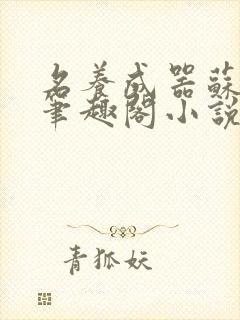 名養成器蘇
筆趣閣小說
青狐妖